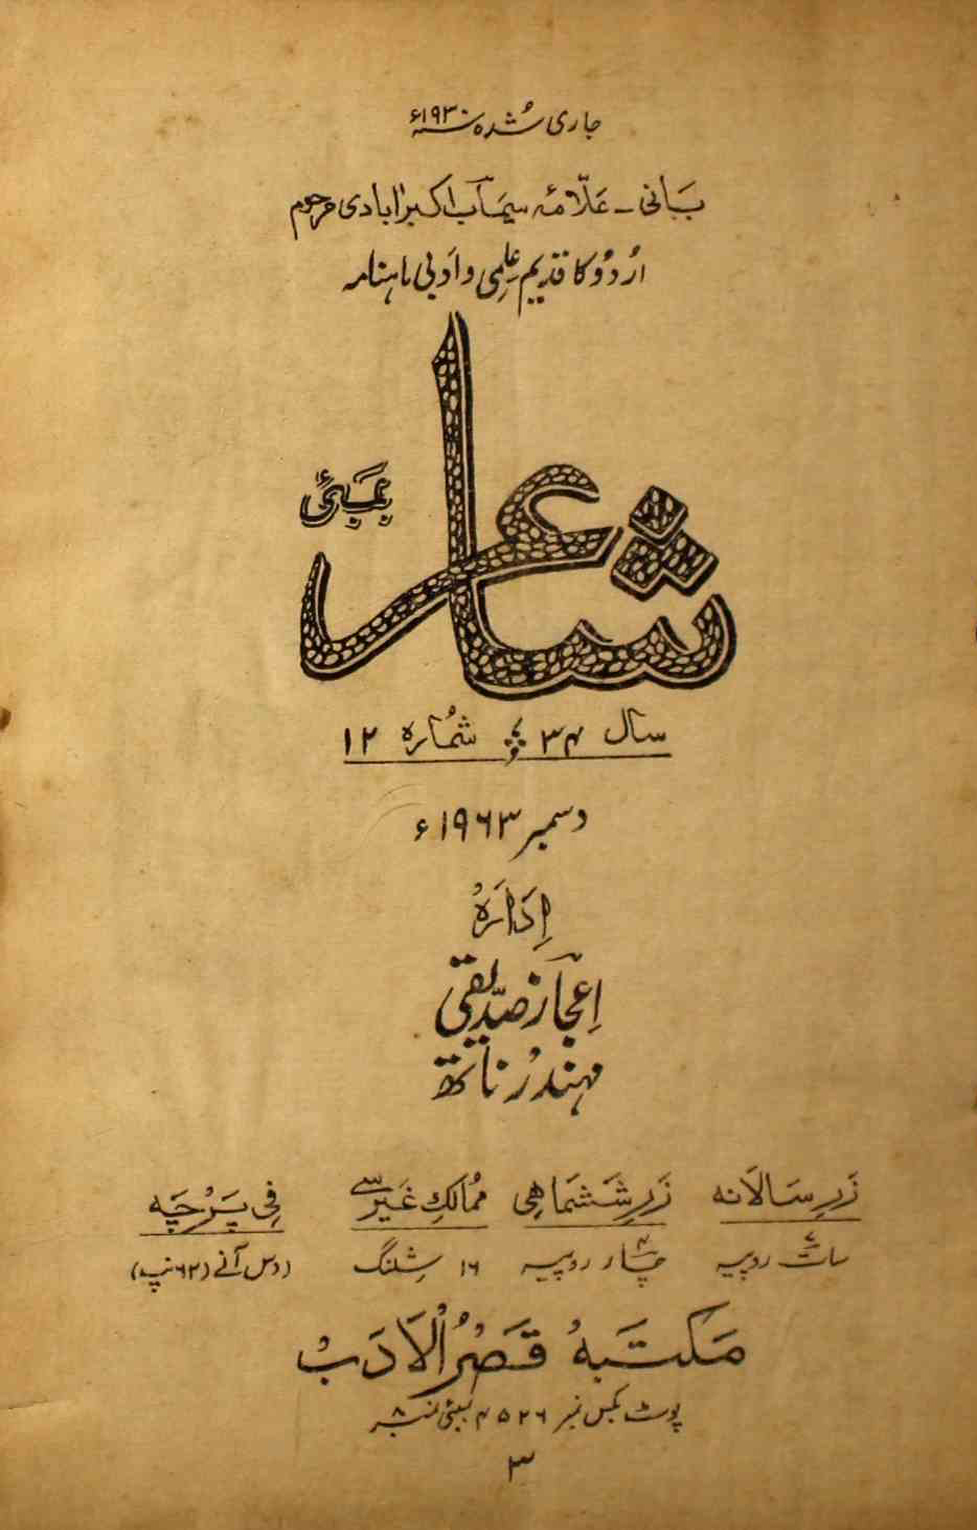 جاری شُدہ سنہ ۱۹۳۰ء
بَانی ۔ عَلّامہ سیمَآب اکبرآبادی مرحوم
اُردُو کا قدیم عِلمِی و اَدبی ماہنامہ
شاعر
بمبَئی
سال ۳۴ شُمارہ ۱۲
دسمبر ۱۹۶۳ء
اِدَارَہُ
اِعجاز صِدّیقی
مہندر ناتھ
زَرِ سَالَانہ زَرِ شَشمَاہی مُمالکِ غَیر سے فِی پَرْچَہ
سات روپیہ چار روپیہ ۱۶ شلنگ (دس آنے (۶۲ نپ)
مَکتَبہُ قَصْرُ الْاَدَبْ
پوسٹ بکس نمبر ۴۵۲۶ بمبئی نمبر ۸
۳